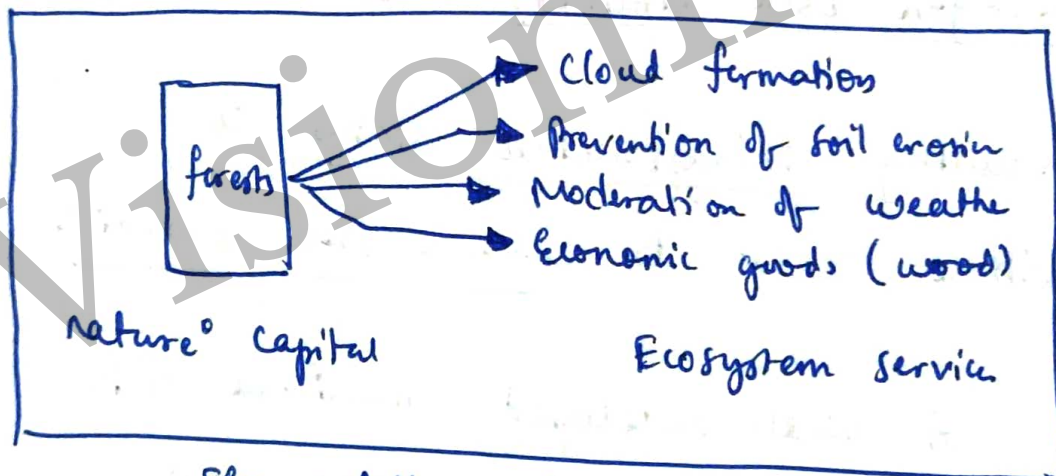 Cloud formation
Prevention of soil erosion
forests
Moderation of weathe
Economic goods (wood)
nature° capital
Ecosystem service
Vision